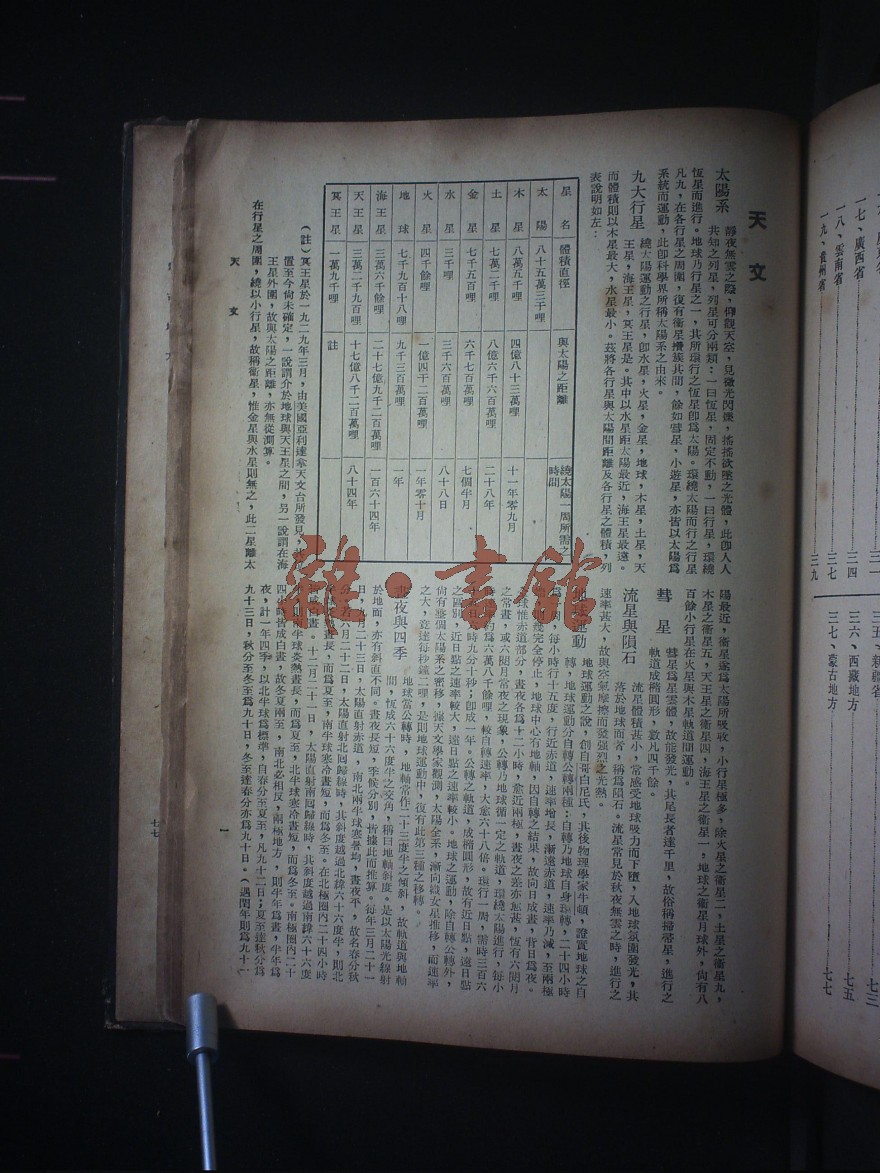 天文
太陽系　靜夜無雲之際，仰觀天空，見微光閃爍，搖搖欲墜之光體，此卽人人
共知之列星，列星可分兩類：一曰恆星，固定不動，一曰行星，環繞
恆星而進行。地球乃行星之一，其所環行之恆星卽爲太陽。環繞太陽而行之行星
凡九，在各行星之周圍，復有衞星攢簇其間，餘如彗星，小遊星，亦皆以太陽爲
系統而運動，此卽科學界所稱太陽系之由來。
九大行星　繞太陽運動之行星，卽水星，火星，金星，地球，木星，土星，天
王星，海王星，冥王星是。其中以水星距太陽最近，海王星最遠。
而體積則以木星最大，水星最小。茲將各行星與太陽間距離及各行星之體積，列
表說明如左：
星名　體積直徑　與太陽之距離　繞太陽一周所需之時間
太陽　八十五萬三千哩
木星　八萬五千哩　四億八十三萬哩　十一年零九月
土星　七萬二千哩　八億六千六百萬哩　二十八年
金星　七千五百哩　六千七百萬哩　七個半月
水星　三千哩　三千六百萬哩　八十八日
火星　四千餘哩　一億四千二百萬哩　一年零十月
地球　七千九百十八哩　九千三百萬哩　一年
海王星　三萬六千餘哩　二十七億九千二百萬哩　一百六十四年
天王星　三萬二千九百哩　十七億八千二百萬哩　八十四年
冥王星　一萬九千哩　註
（註）冥王星於一九二九年三月，由美國亞利達拿天文台所發見，其位
置至今尙未確定，一說謂介於地球與天王星之間，另一說謂在海
王星外圍，故與太陽之距離，亦無從測算。
在行星之周圍，繞以小行星，故稱衞星，惟金星與水星則無之，此二星離太
陽最近，衞星遂爲太陽所吸收，小行星極多，除火星之衞星二，土星之衞星九，
木星之衞星五，天王星之衞星四，海王星之衞星一，地球之衞星月球外，尙有八
百餘小行星在火星與木星軌道間運動。
彗星　彗星爲星雲體，故能發光，其尾長者達千里，故俗稱掃帚星，進行之
軌道成橢圓形，數凡四千餘。
流星與隕石　流星體積甚小，常感受地球吸力而下墮，入地球氛圍發光，其
落於地球而者，稱爲隕石。流星常見於秋夜無雲之時，進行之
速率甚大，故與空氣摩擦而發强烈之光熱。
地球運動　地球運動之說，創自哥白尼氏，其後物理學家牛頓，證實地球之自
轉，地球運動分自轉公轉兩種：自轉乃地球自身環轉，二十四小時
一周，每小時行十五度，行近赤道，速率增長，漸遠赤道，速率乃減，至兩極
幾完全停止，地球中心有地軸，因自轉之結果，故向日成晝，背日爲夜。
地球惟赤道部分，晝夜各爲十二小時，愈近兩極，晝夜之差亦愈甚，恆有六閱月
之常晝，或六閱月常夜之現象，公轉乃地球循一定之軌道，環繞太陽進行，每小
約爲六萬八千餘哩，較自轉速率，大愈六十八倍。環行一周，需時三百六
時九分十秒；卽成一年。公轉之軌道，成橢圓形，故有近日點，遠日點
之區別，近日點之速率較大，遠日點之速率較小。地球之運動，除自轉公轉外，
尙有整個太陽系之密移，據天文學家觀測，太陽全系，漸向織女星推移，而速率
之大，竟達每秒鐘二哩，是則地球運動中，復有此第三種之移轉。
晝夜與四季　地球當公轉時，地軸當作二十三度半之傾斜，故軌道與地軸
間，恆成六十六度半之交角，稱曰地軸斜度。是以太陽光線射
於地面，亦有斜直不同。晝夜長短，季候分別，皆據此而推算。每年三月二十一
日，九月二十三日，太陽直射赤道，南北兩半球寒暑均，晝夜平，故名春分秋
分，若六月二十二日，太陽直射北囘歸線時，其斜度越過北緯六十六度半，則北
晝長，而爲夏至，南半球寒冷晝短，而爲冬至。在北極圈內二十四小時
皆成白晝。十二月二十一日，太陽直射南囘歸線時，其斜度越過南緯六十六度
半，則南半球炎熱晝長，而爲夏至，北半球寒冷晝短，而爲冬至。南極圈內二十
四小時皆成白晝，故冬夏兩至，南北必相反，兩極地方，則半年爲晝，半年爲
夜，計一年四季，以北半球爲標準，自春分至夏至，凡九十二日；夏至達秋分爲
九十三日，秋分至冬至爲九十日，冬至達春分亦爲九十日。（遇閏年則爲九十一
天文
一
七七
一七、廣西省　三四
一八、雲南省　三七
一九、貴州省　三九
三五、新疆省　七三
三六、西藏地方　七五
三七、蒙古地方　七七
雅·書館